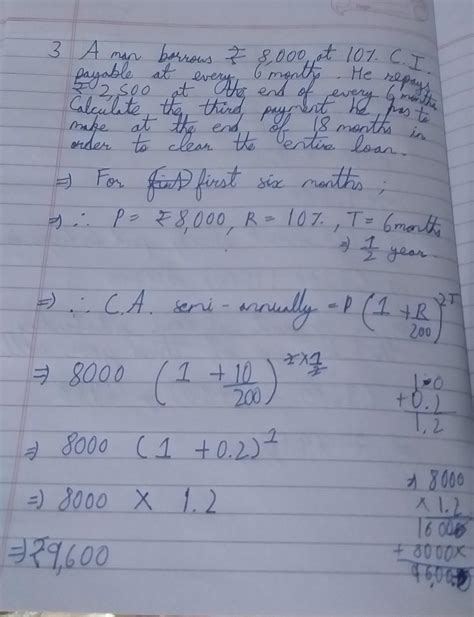 3 A man borrows ₹ 8,000 at 10% C.I.
payable at every 6 months. He repays
₹ 2,500 at the end of every 6 months
Calculate the third payment he has to
make at the end of 18 months in
order to clear the entire loan.
⇒ For first six months ;
⇒ ∴ P = ₹8,000, R = 10%, T = 6 months
⇒ 1/2 year.
⇒ ∴ C.A. semi-annually = P (1 + R/200)^2T
⇒ 8000 (1 + 10/200)^2×1/2
1.0
+0.2
1.2
⇒ 8000 (1 + 0.2)^1
⇒ 8000 × 1.2
8000
× 1.2
16000
+ 8000×
96000
⇒ ₹9,600